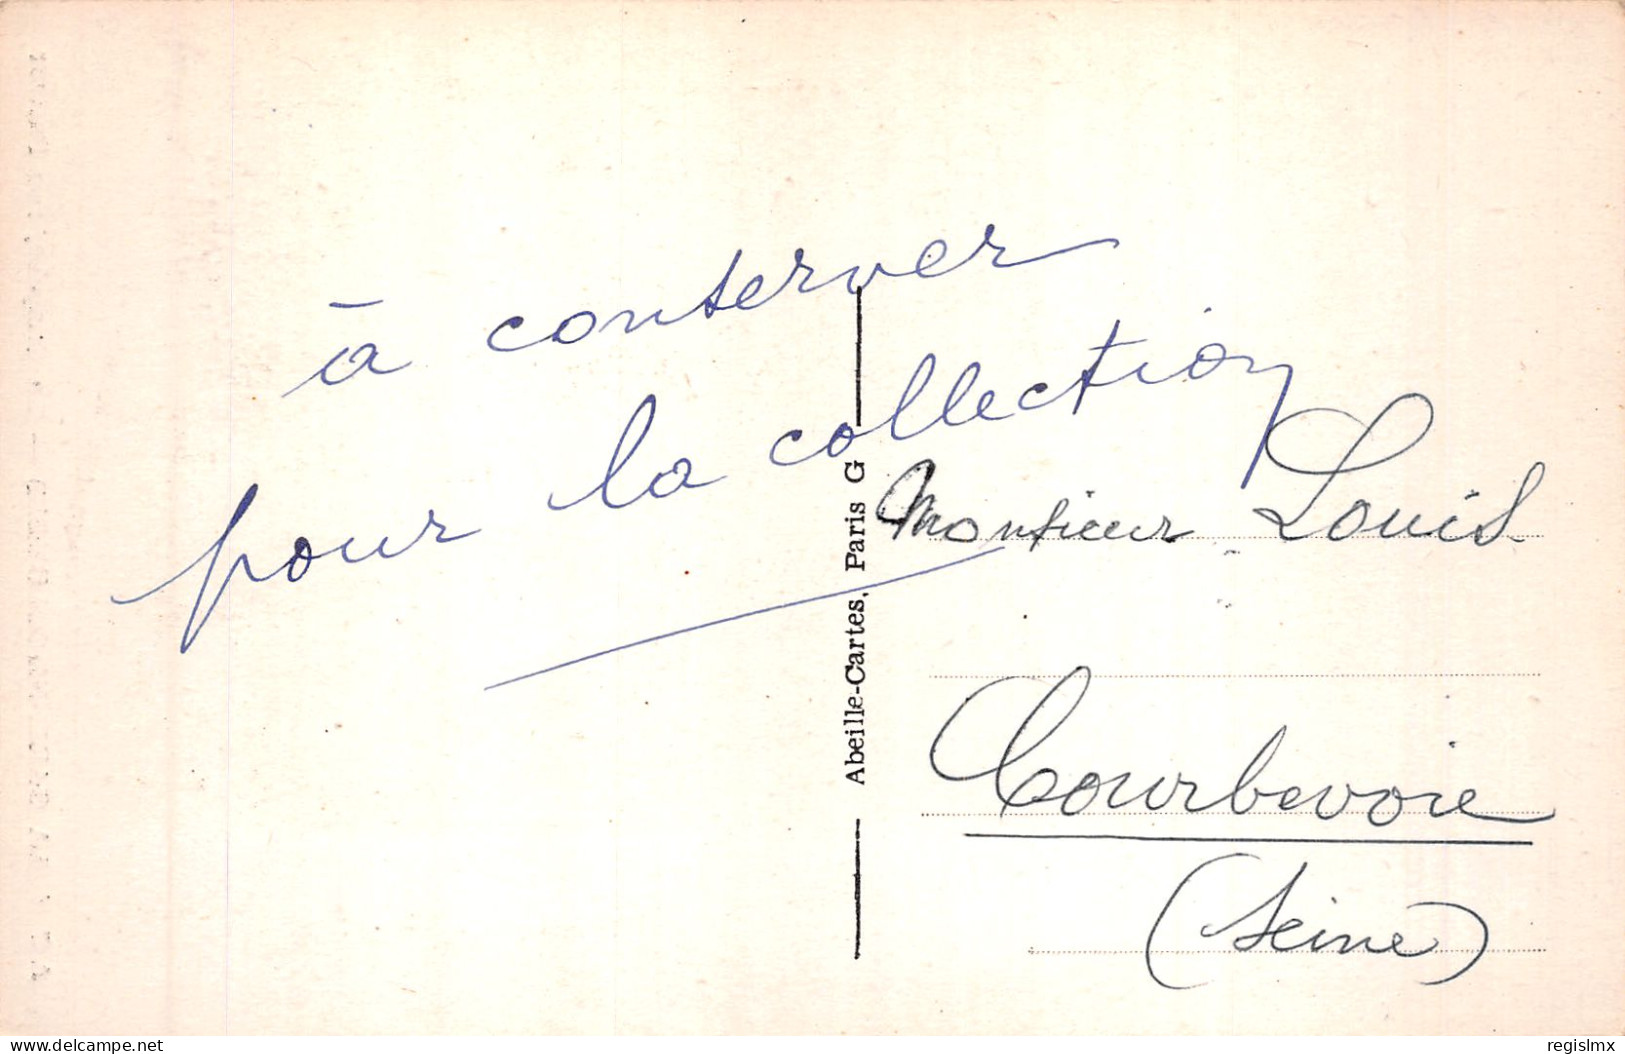 à conserver
pour la collection
Abeille-Cartes, Paris G
Monsieur Louis
Courbevoie
(Seine)
www.delcampe.net
regislmx